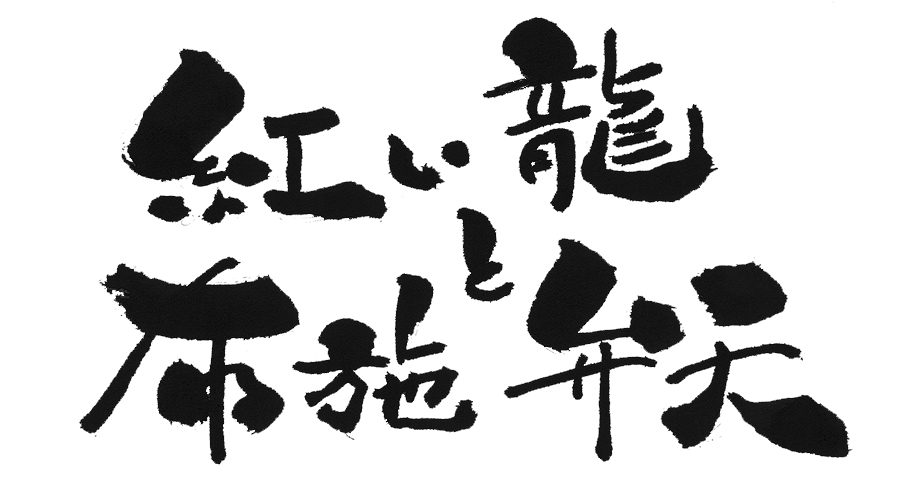 紅い龍
と
布施弁天